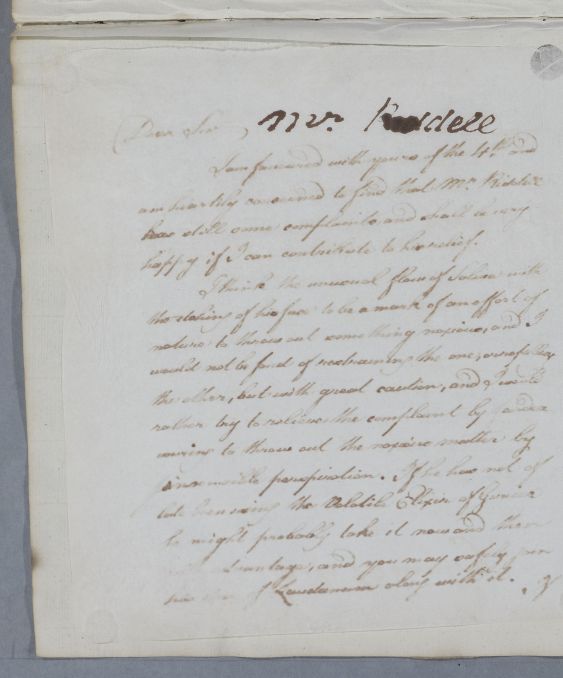 Mrs. Riddell
Dear Sir,
I am favoured with yours of the 4th. and
am heartily concerned to find that Mr. Riddell
has still some complaints, and shall be very
happy if I can contribute to his relief.
I think the unusual flow of Saliva with
the of his face to be a mark of an effort of
nature to throw out something noxious, and I
would not be fond of restraining the one, or
the other, but with great caution, and I would
rather try to relieve the complaint by endea
vouring to throw out the noxious matter by
insensible perspiration. If he has not of
late been using the Volatile Elixir of Guaiac
he might probably take it now and then
advantage, and you may safely
Laudanum along with it.